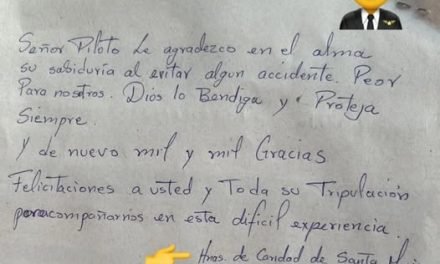 Señor Piloto Le agradezco en el alma
su sabiduria al evitar algun accidente. Peor
Para nosotros. Dios lo Bendiga y Proteja
Siempre.
Y de nuevo mil y mil Gracias
Felicitaciones a usted y Toda su Tripulación
por acompañarnos en esta dificil experiencia.
Hnas. de Caridad de Santa